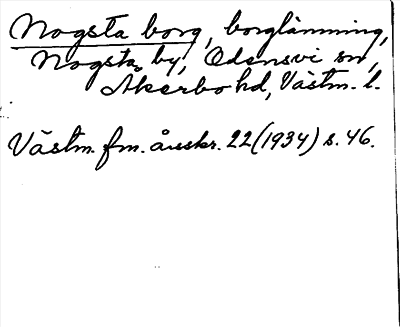 Nogsta borg, borglämning,
Nogsta by, Odensvi sn,
Åkerbo hd, Västm. l.
Västm. fm. årsskr. 22 (1934) s. 46.